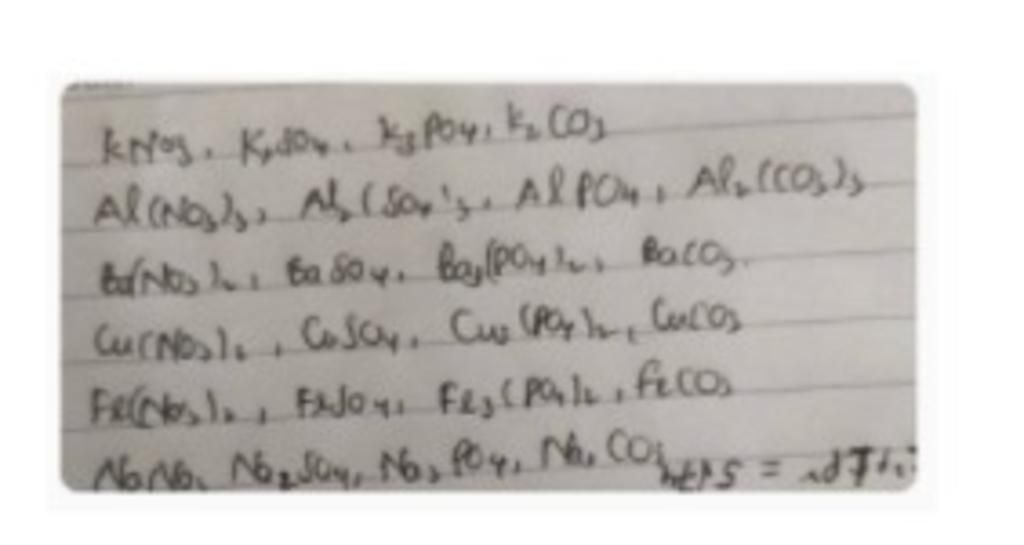 KNO3, K2SO4, K3PO4, K2CO3
Al(NO3)3, Al2(SO4)3, AlPO4, Al2(CO3)3
Ba(NO3)2, BaSO4, Ba3(PO4)2, BaCO3
Cu(NO3)2, CuSO4, Cu3(PO4)2, CuCO3
Fe(NO3)2, FeSO4, Fe3(PO4)2, FeCO3
NaNO3, Na2SO4, Na3PO4, Na2CO3